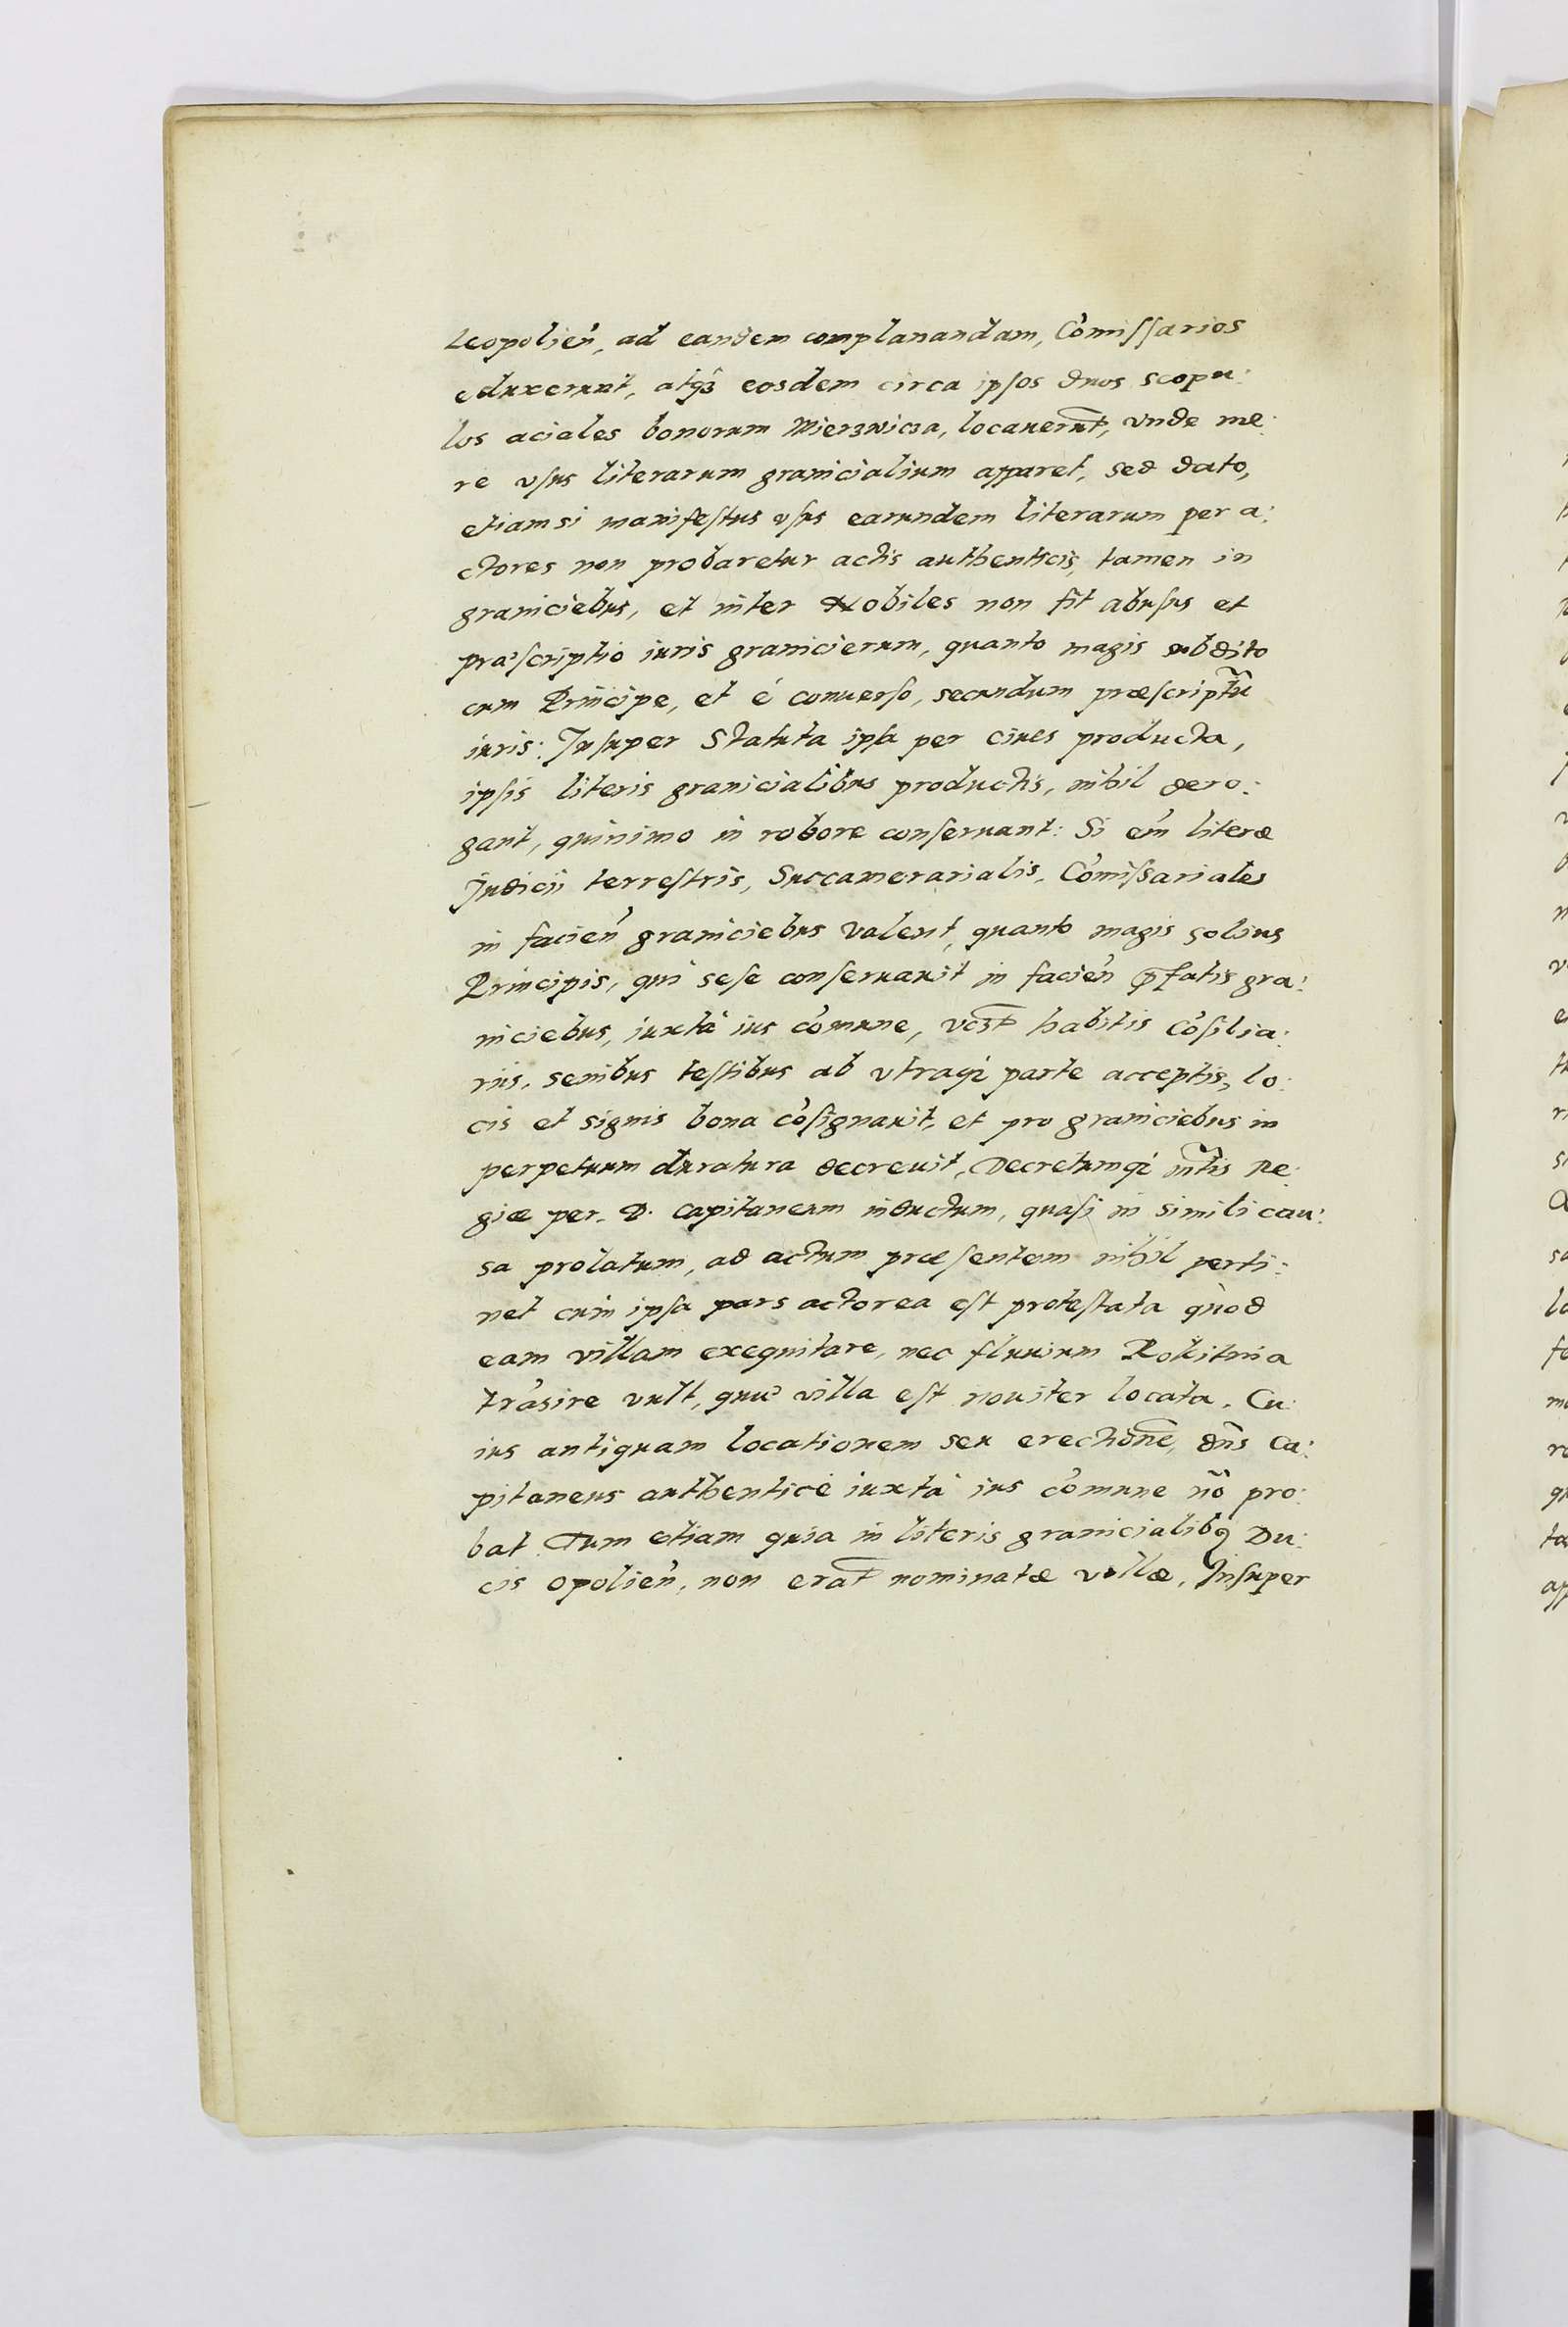 Leopolień, ad eandem complanandam, Cómissarios
eduxerunt, atqȝ eosdem circa ipsos duos scopu:
los aciales bonorum Mierzwicza, locauerūt, vnde me:
re vsus literarum granicialium apparet, sed dato,
etiamsi manifestus vsus earundem literarum per a:
ctores non probaretur actis authenticis, tamen in
graniciebus, et inter Nobiles non sit abusus et
præscriptio iuris granicierum, quanto magis subdito
cum Principe, et é conuerso, secundum præscriptū
iuris: Insuper Statuta ipsa per ciues producta,
ipsis literis granicialibus productis, nihil dero:
gant, quinimo in robore conseruant: Si em̃ literæ
Judicii terrestris, Succamerarialis, Cómissariales
in facień graniciebus valent, quanto magis solius
Principis, qui sese conseruauit in facień p̱fatis gra:
niciebus, iuxtà ius cómune, vcȝt habitis Cósilia:
riis, senibus testibus ab vtraqȝ parte acceptis, lo:
cis et signis bona cósignauit, et pro graniciebus in
perpetuum duratura decreuit, Decretumqȝ mt̃is Re:
giæ per D. Capitaneum inductum, quasi in simili cau:
sa prolatum, ad actum præsentem nihil perti:
net cum ipsa pars actorea est protestata quod
eam villam exequitare, nec fluuium Rokitnia
trásire vult, quæ villa est nouiter locata. Cu:
ius antiquam locationem seu erectionē, dn̄s Ca:
pitaneus authenticè iuxtà ius cómune nõ pro:
bat Tum etiam quia in literis granicialibꝯ Du:
cis Opolień, non erāt nominatæ villæ, Insuper